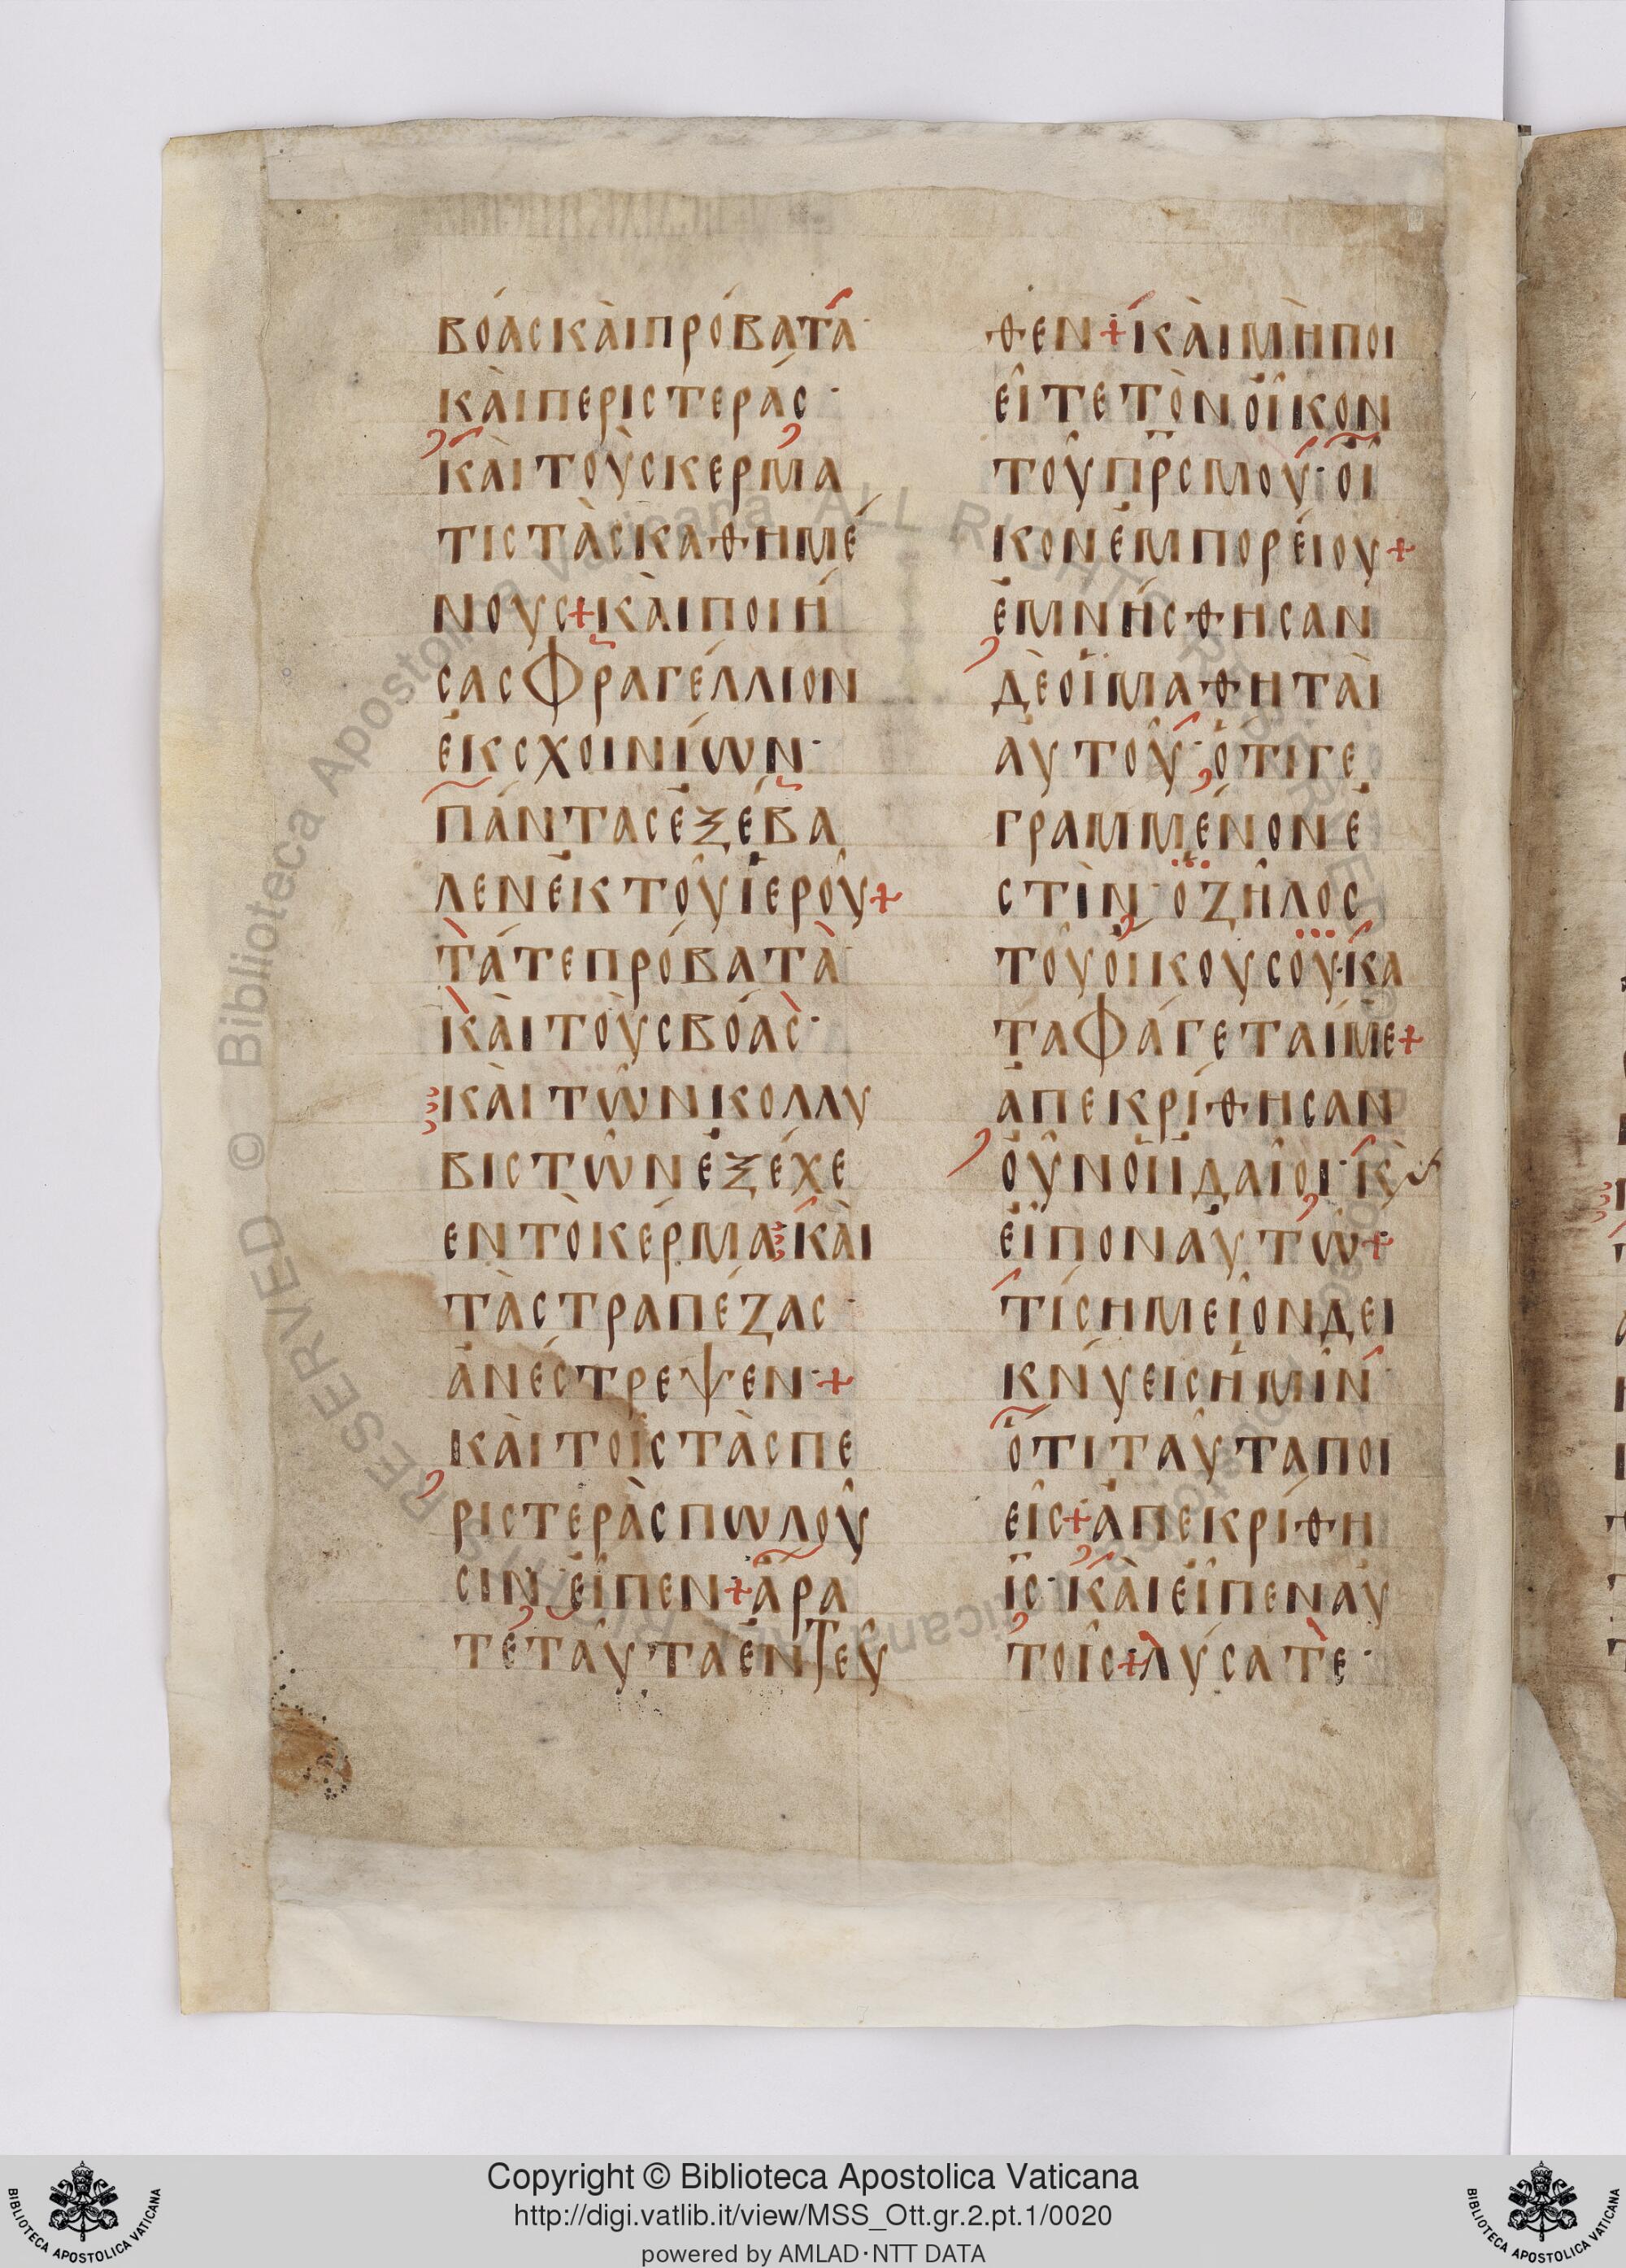 βόασκὰιπρόβατα·
κὰιπεριστεράς·
κὰιτοὺσκερμα
τιστὰσκαθημέ
νους+κὰιποιή
σασφραγέλλιον
ἐκσχοινίων·
πάντασἐξέβα
λενἐκτοῦἱεροῦ+
τάτεπρόβατὰ·
κὰιτοὺσβόας·
κὰιτῶνκολλυ
βιστῶνἐξέχε
εντὸκέρμα·κὰι
τὰστραπέζας·
ἀνέστρεψεν·+
κὰιτοῖστὰσπε
ριστερὰσπωλοῦ
σιν·εἶπεν+ἄρα
τέταῦταἐντεῦ
θεν+κὰιμὴποι
εῖτετὸνοἶκον
τοῦπρσμοῦ·οἶ
κονἐμπορείου+
ἐμνήσθησαν
δὲοἱμαθηταὶ
ἀυτοῦ·ὅτιγε
γραμμένονἐ
στὶν·ὁζῆλος
τοῦοἴκουσοῦ·κα
ταφάγεταίμε+
ἀπεκρίθησαν
οὖνοἱιδαῖοι·κϛ
εἶπονἀυτῶ+
τίσημεῖονδει
κνύεισἡμῖν·
ὅτιταῦταποι
εῖς+ἀπεκρίθη
ις·κὰιεἶπεναυ
τοῖς+λύσατε·
Copyright © Biblioteca Apostolica Vaticana
http://digi.vatlib.it/view/MSS_Ott.gr.2.pt.1/0020
powered by AMLAD·NTT DATA
BIBLIOTECA APOSTOLICA VATICANA
BIBLIOTECA APOSTOLICA VATICANA